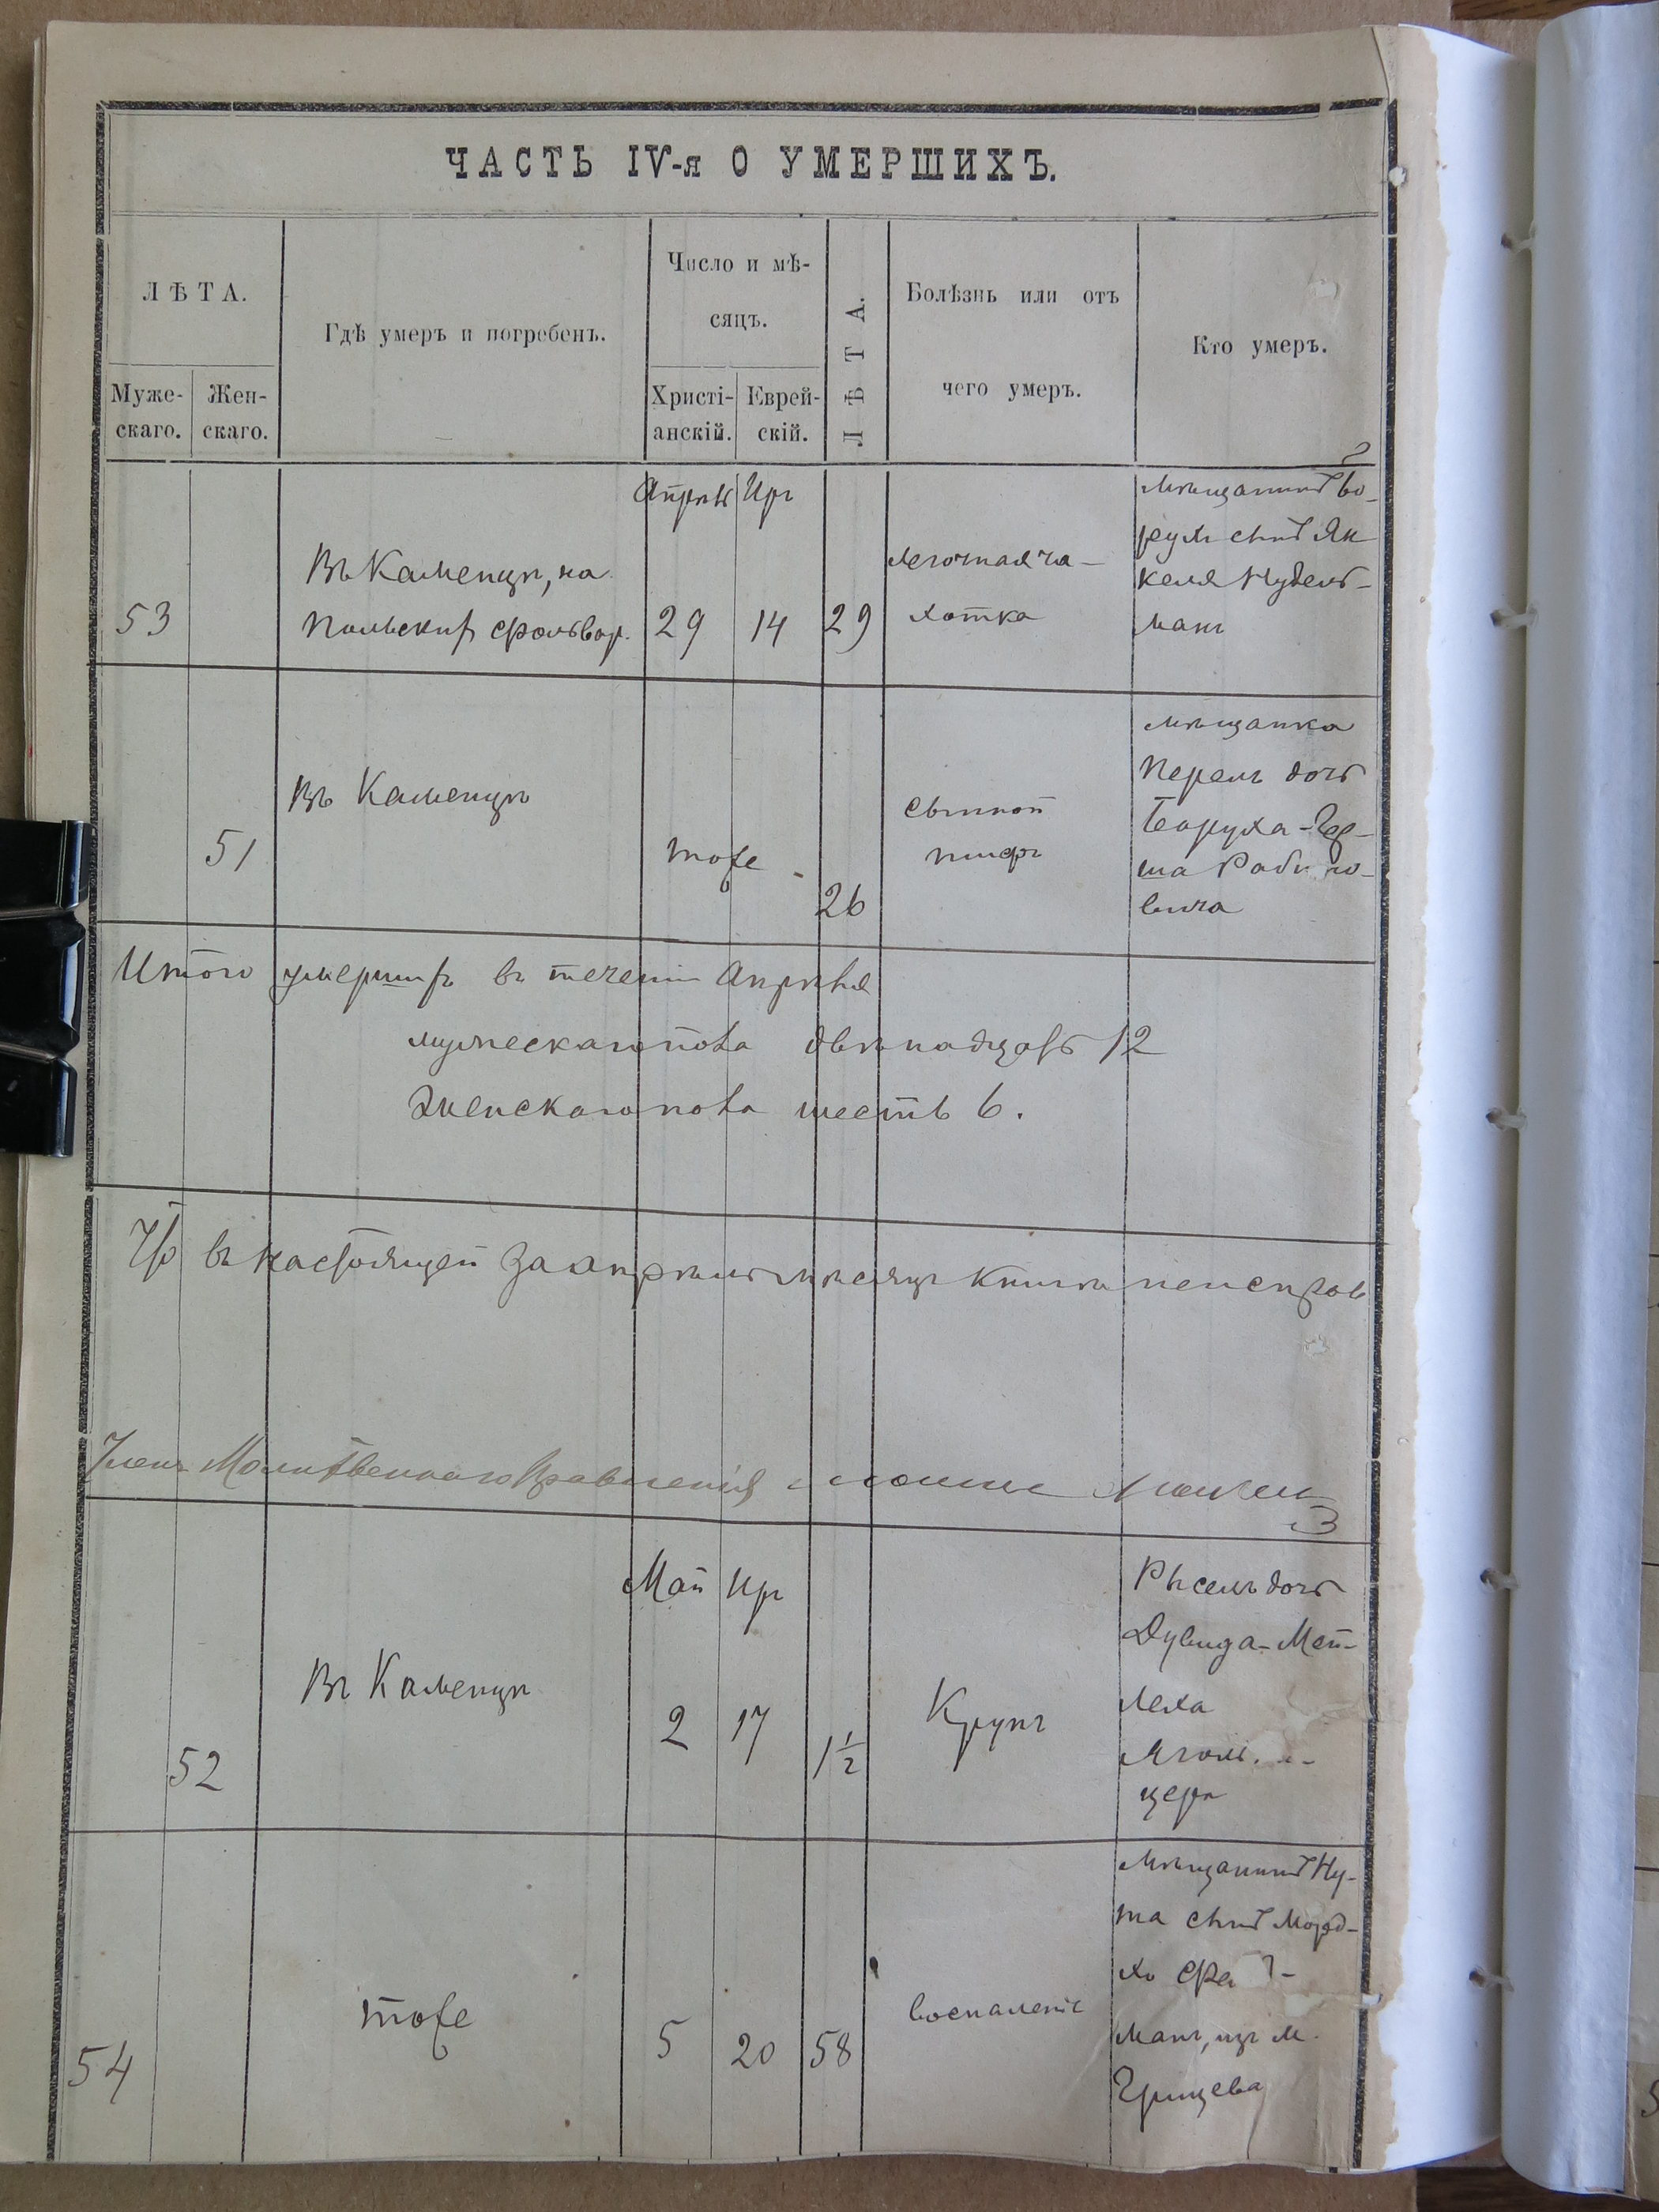 ЧАСТЬ IV-я О УМЕРШИХЪ.
ЛѢТА.
Муже-
скаго.
Жен-
скаго.
Гдѣ умеръ и погребенъ.
Число и мѣ-
сяцъ.
Христі-
анскій.
Еврей-
скій.
ЛѢТА.
Болѣзнь или отъ
чего умеръ.
Кто умеръ.
2
53
Въ Каменцѣ, на
Польских фольвар.
Апрѣль
29
Иръ
14
29
легочная ча-
хотка
мѣщанинъ Бо-
рухъ сынъ Ян
келя Нудель-
манъ
51
Въ Каменцѣ
тоже
26
сыпной
тифъ
мѣщанка
Перель дочь
Боруха-Гер-
ша Рабино-
вича
Итого умерших въ течении Апрѣля
мужескаго пола двѣнадцать 12
Женскаго пола шесть 6.
Что въ настоящей за апрѣль мѣсяцъ книги неисправ
Членъ Молитвеннаго Правленія
3
52
Въ Каменцѣ
Май
2
Иръ
17
1 1/2
Крупъ
Рысель дочь
Дувида-Мей-
леха
цера
54
тоже
5
20
58
воспаленіе
мѣщанинъ Ну-
та сынъ Морд-
ко
манъ, изъ м.
Грицева